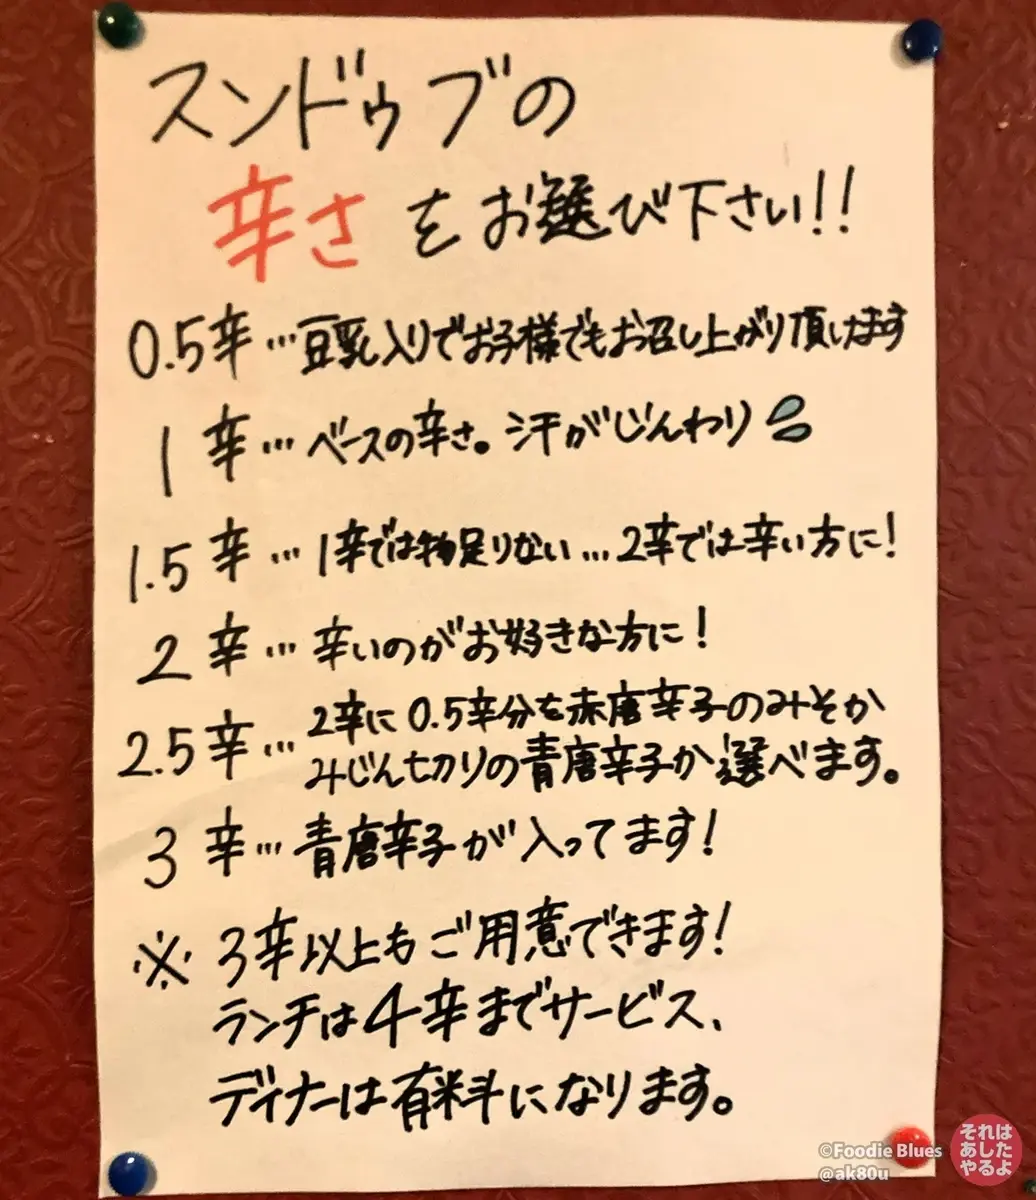 スンドゥブの
辛さをお選び下さい!!
0.5辛…豆乳入りでお子様でもお召し上がり頂けます
1辛…ベースの辛さ。汗がじんわり
1.5辛…1辛では物足りない…2辛では辛い方に!
2辛…辛いのがお好きな方に!
2.5辛…2辛に0.5辛分を赤唐辛子のみそか
みじん切りの青唐辛子か選べます。
3辛…青唐辛子が入ってます!
※3辛以上もご用意できます!
ランチは4辛までサービス、
ディナーは有料になります。
©Foodie Blues
@ak80u
それは
あした
やるよ